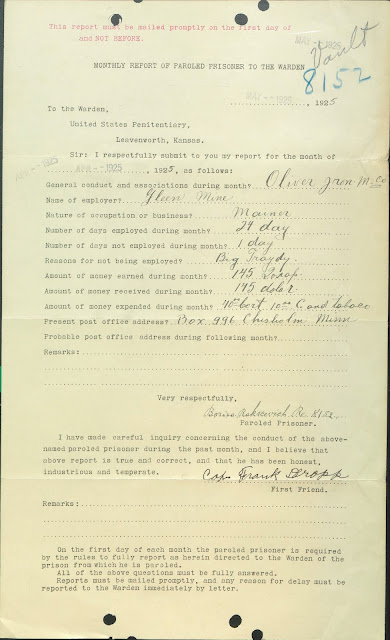 This report must be mailed promptly on the first day of
and NOT BEFORE.
MAY 1925
Vault
8152
MONTHLY REPORT OF PAROLED PRISONER TO THE WARDEN
MAY 1925, 1925
To the Warden,
United States Penitentiary,
Leavenworth, Kansas.
APR 1925
Sir: I respectfully submit to you my report for the month of
APR 1925, 1925, as follows:
General conduct and associations during month? Oliver Iron M. Co
Name of employer? Gleen Mine
Nature of occupation or business? Mainer
Number of days employed during month? 29 day
Number of days not employed during month? 1 day
Reasons for not being employed? Big
Amount of money earned during month? 145
Amount of money received during month? 145 doler
Amount of money expended during month? 40 bort 10 C and tobaco
Present post office address? Box 996 Chisholm Minn
Probable post office address during following month?
Remarks:
Very respectfully,
Paroled Prisoner.
I have made careful inquiry concerning the conduct of the above-
named paroled prisoner during the past month, and I believe that
above report is true and correct, and that he has been honest,
industrious and temperate.
Cap Frank
First Friend.
Remarks:
On the first day of each month the paroled prisoner is required
by the rules to fully report as herein directed to the Warden of the
prison from which he is paroled.
All of the above questions must be fully answered.
Reports must be mailed promptly, and any reason for delay must be
reported to the Warden immediately by letter.